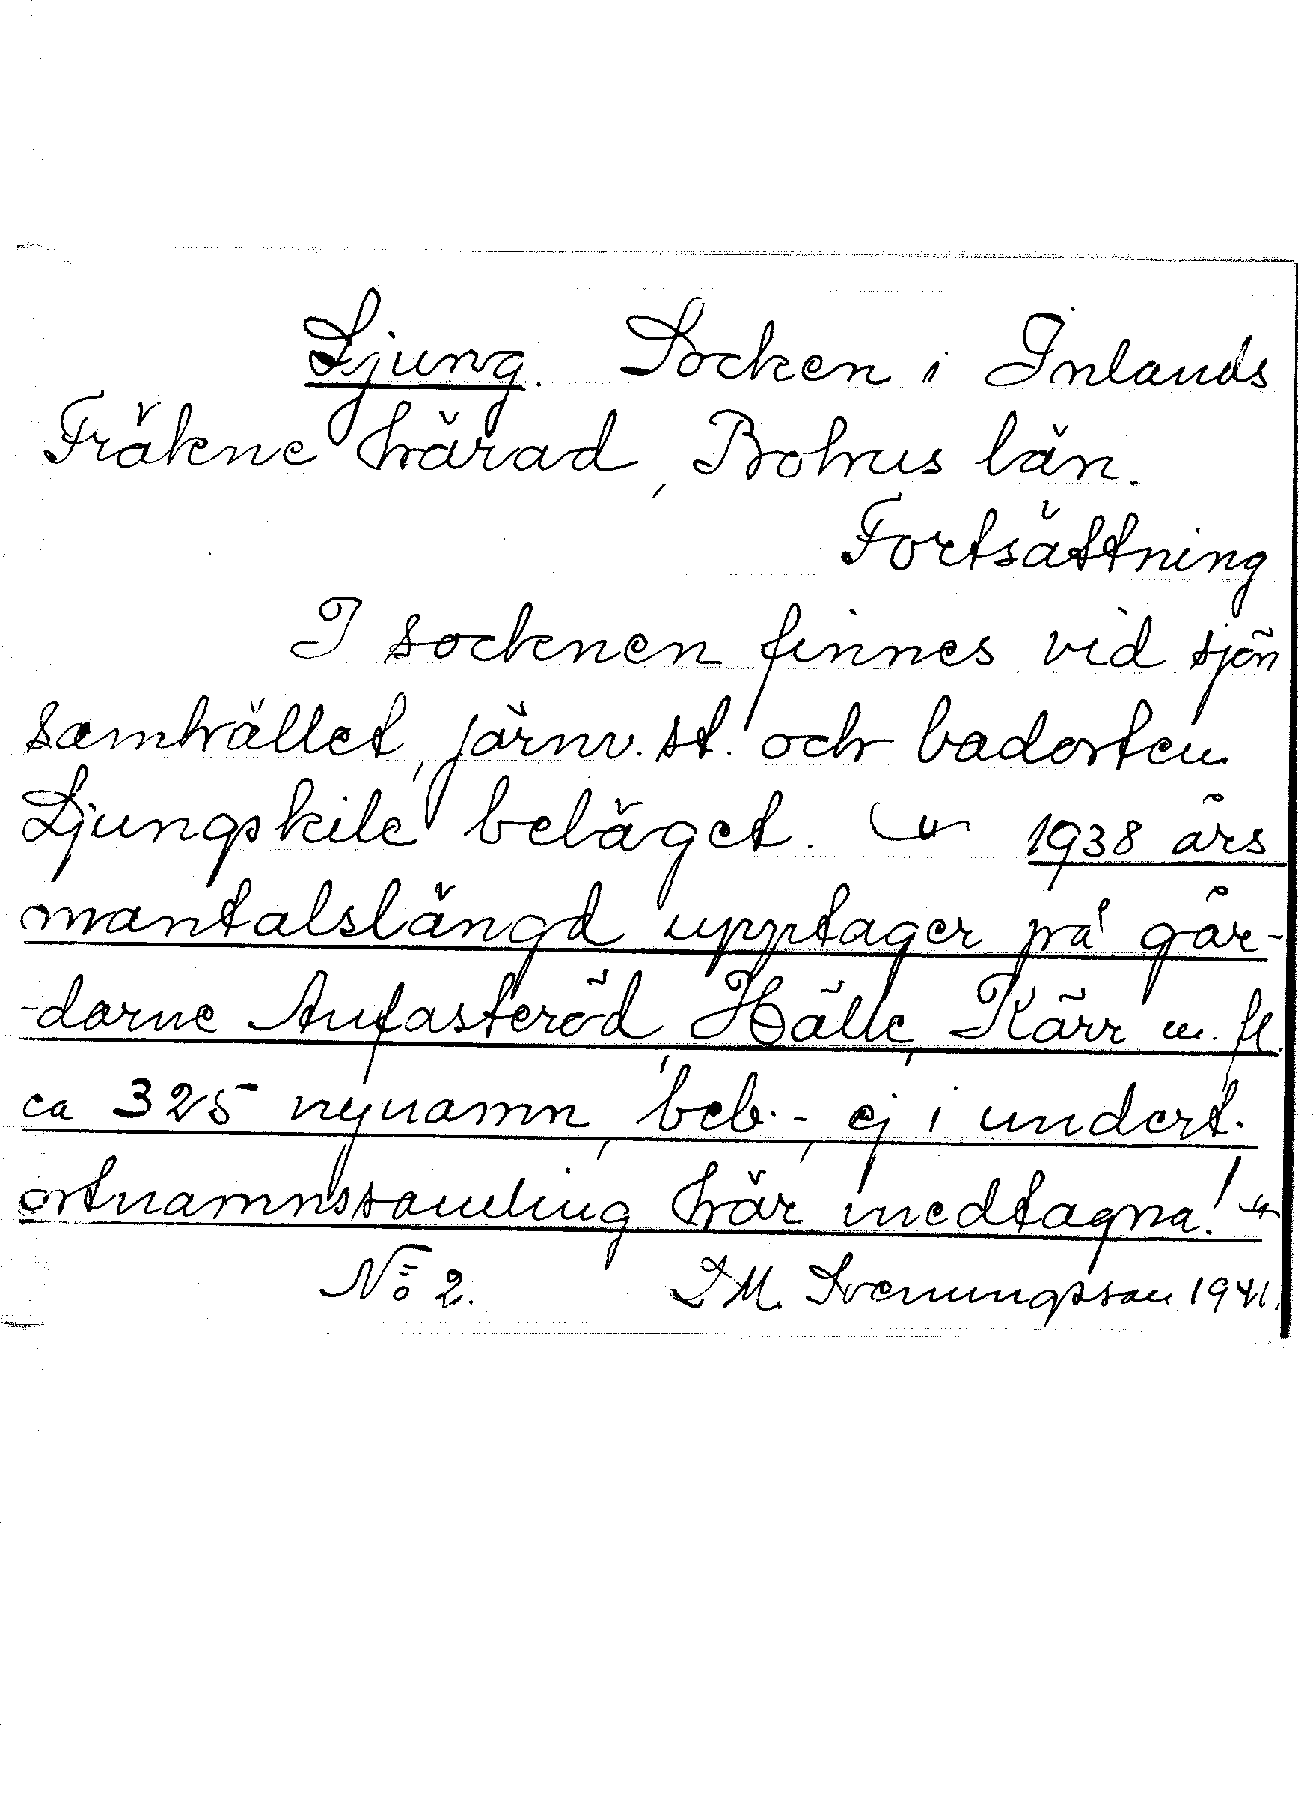 Ljung. Socken i Inlands
Fräkne härad, Bohus län.
Fortsättning
I socknen finnes vid sjön
samhället, järnv. st. och badorten
Ljungskile beläget. 1938 års
mantalslängd upptager på går-
-darne Anfasteröd, Hälle, Kärr m. fl.
ca 325 nynamn, beb.-, ej i undert.
ortnamnssamling här medtagna!
No 2. J. M. Svenungsson 1941.